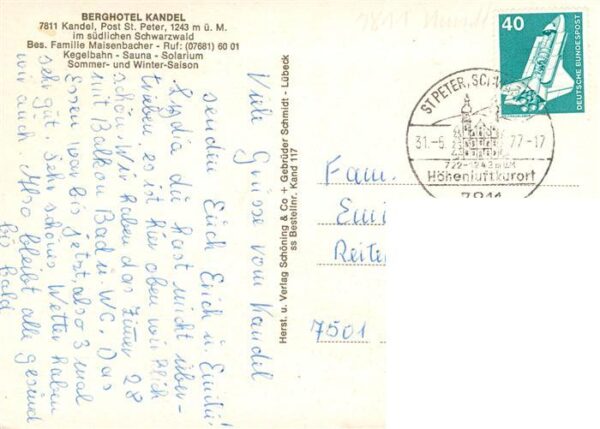 BERGHOTEL KANDEL
7811 Kandel, Post St. Peter, 1243 m ü. M.
im südlichen Schwarzwald
Bes. Familie Maisenbacher - Ruf: (07681) 60 01
Kegelbahn - Sauna - Solarium
Sommer- und Winter-Saison
Viele Grüsse vom Kandel
senden Euch Erich u. Emilie!
Lydia du hast nicht über-
trieben, es ist hier oben wirklich
schön. Wir haben das Zimer 28
mit Balkon Bad u. W.C. Das
Essen war bis jetzt, also 3 mal
sehr gut sehr schönes Wetter haben
wir auch. Also bleibt alle gesund
bis Bald
Herst. u. Verlag Schöning & Co + Gebrüder Schmidt - Lübeck
ss Bestellnr. Kand 117
40
DEUTSCHE BUNDESPOST
ST PETER, SCHW
31.-5. 77-17
722-1243 m üM
Höhenluftkurort
7811
Fam.
Emi
Reite
7501